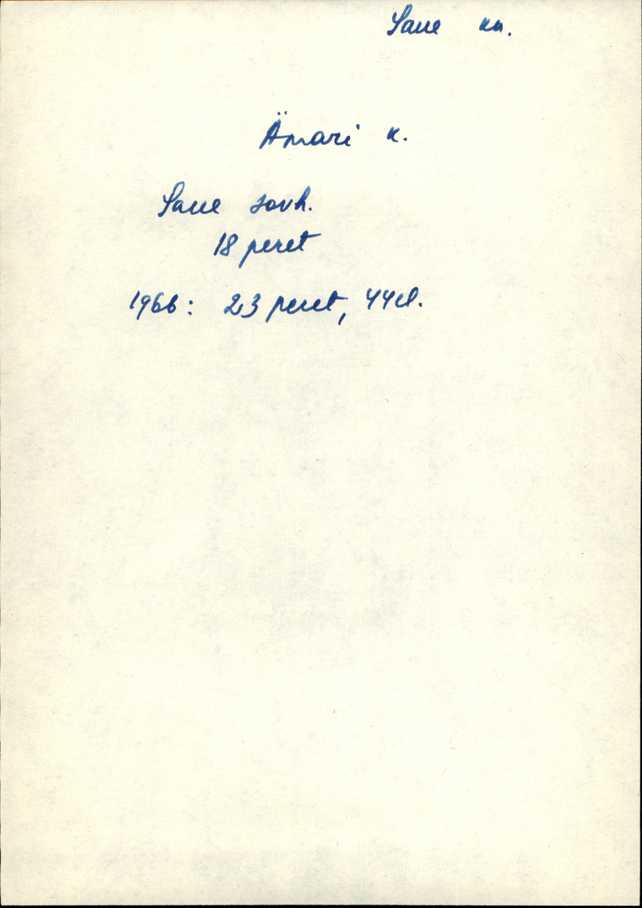 Saue kn.
Ämari k.
Saue sovh.
18 peret
1966: 23 peret, 44 el.